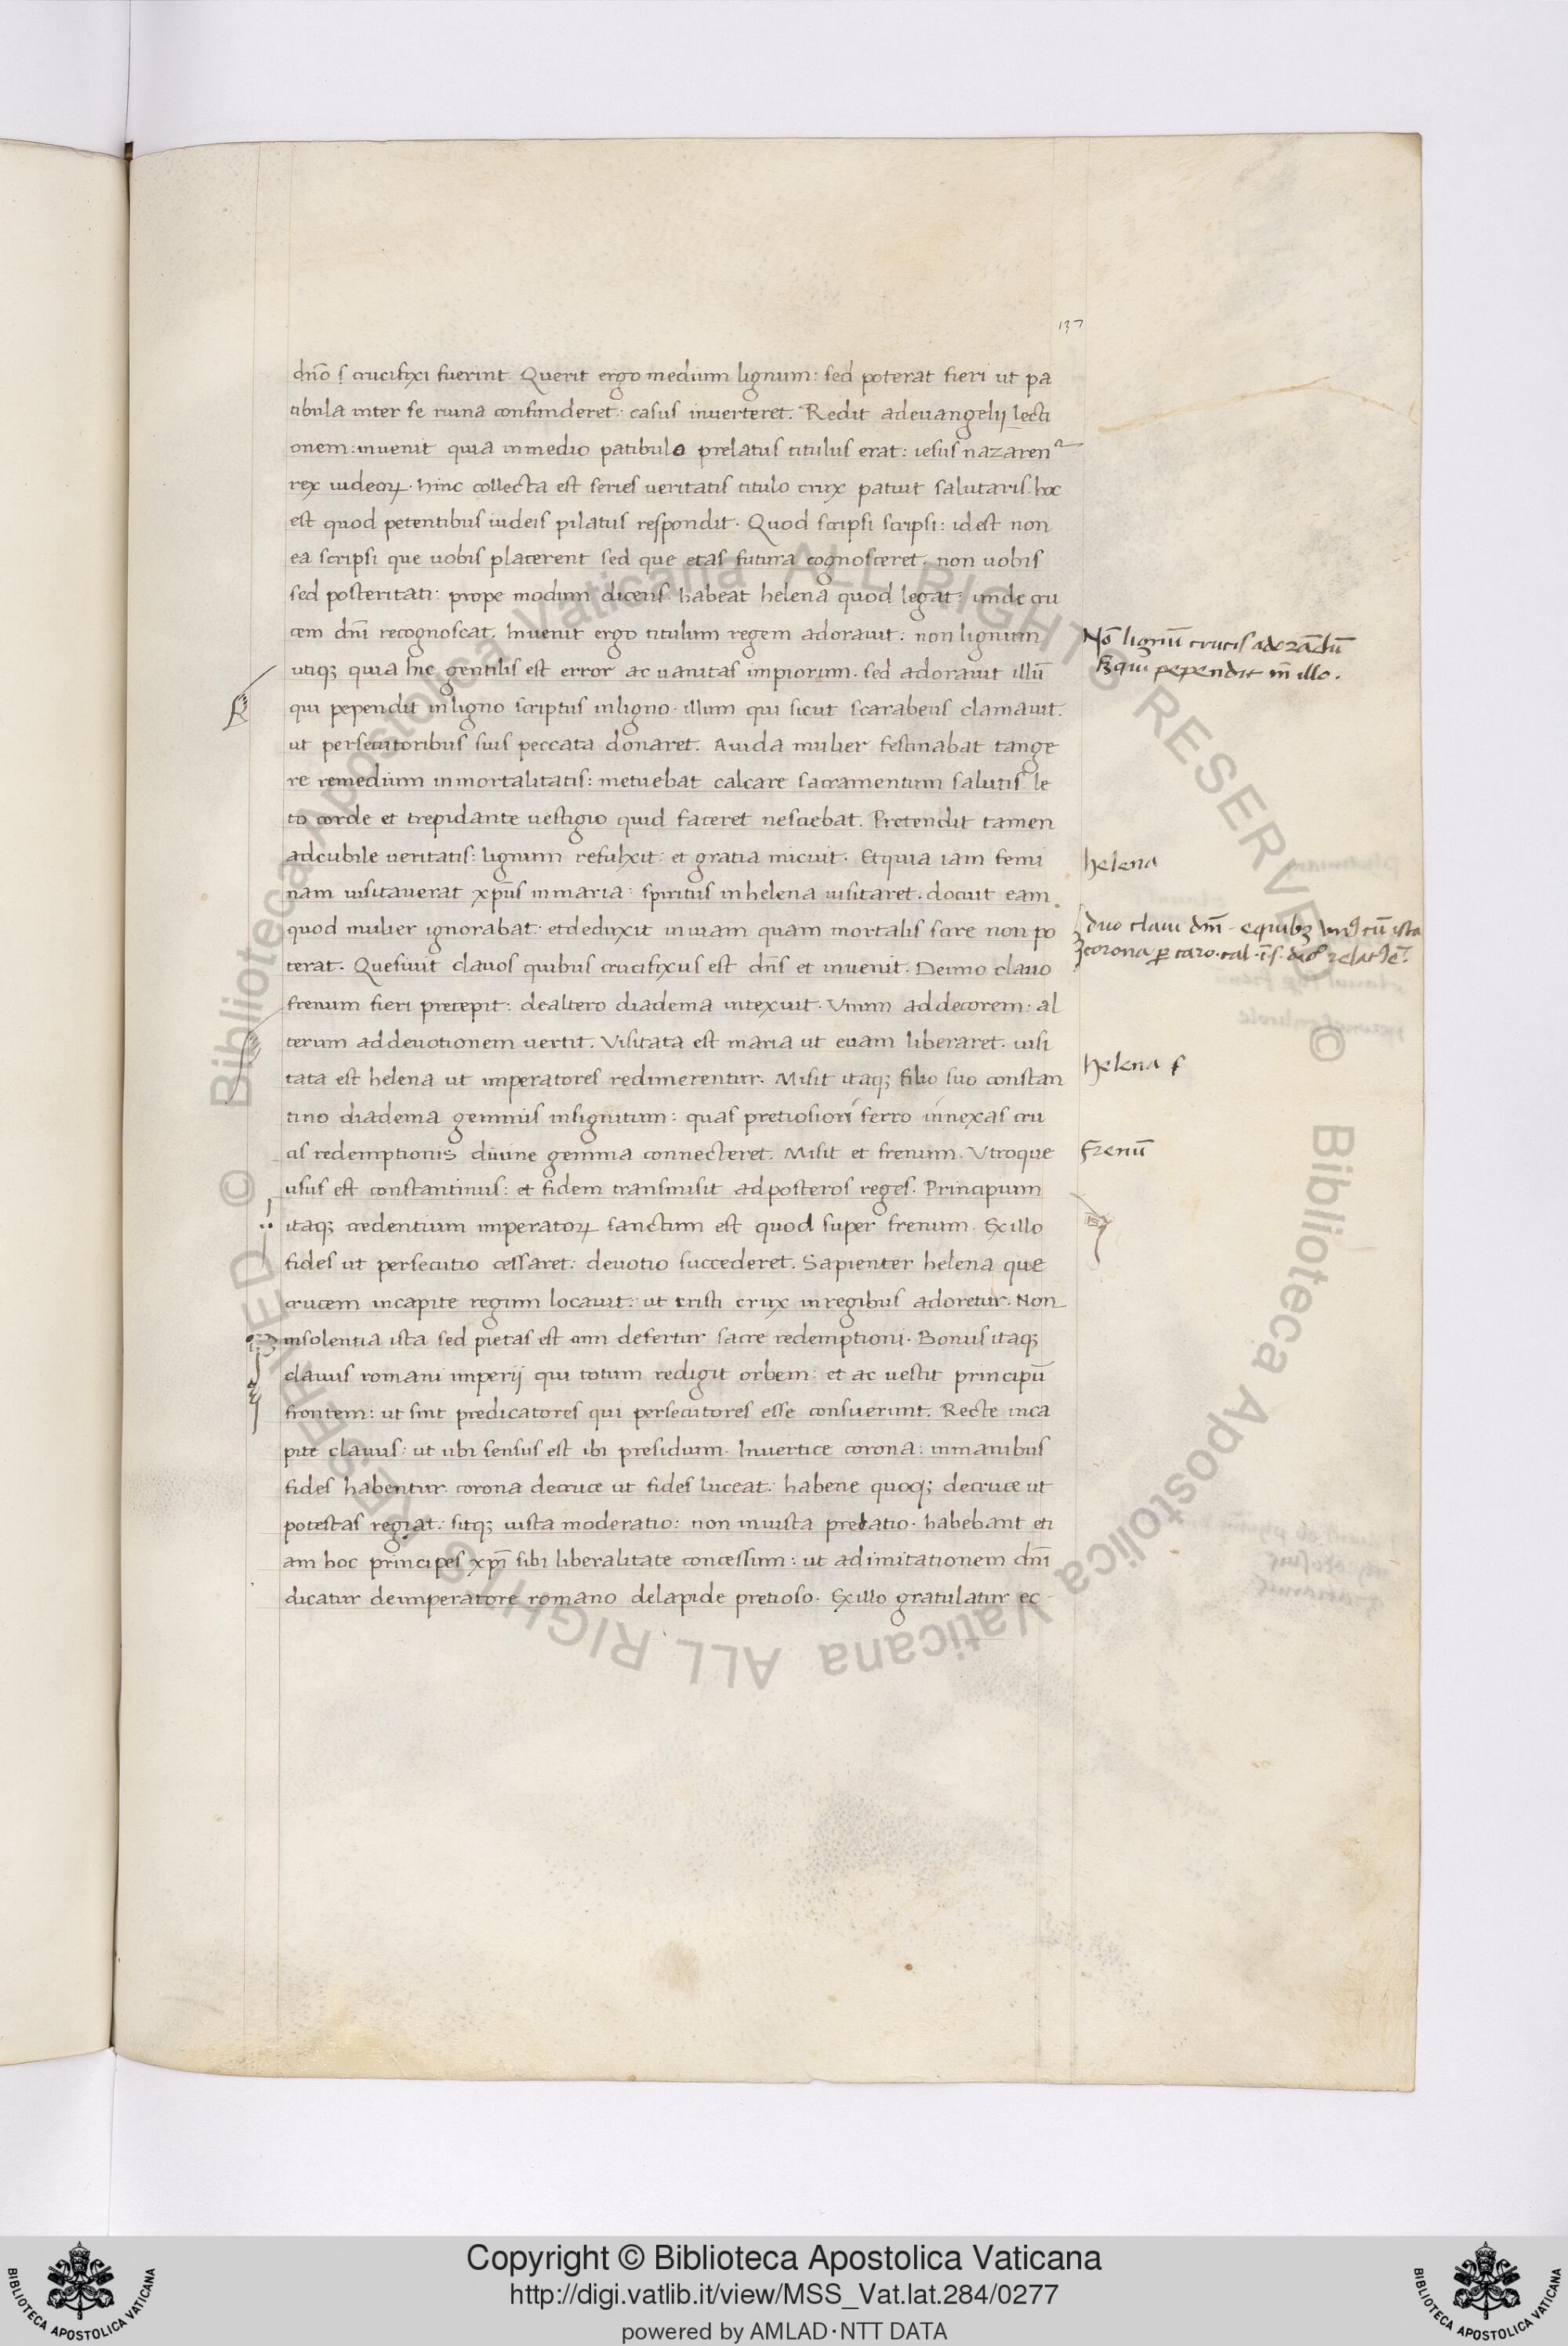 137
dño ſ crucifixi fuerint. Querit ergo medium lignum: sed poterat fieri ut pa
tibula inter se ruina confunderet: casus inverteret. Redit adeuangelij lecti
onem: invenit quia inmedio patibulo prelatus titulus erat: iesus nazaren⁹
rex iudeoꝝ. hinc collecta est series veritatis titulo crux patuit salutaris. hoc
est quod petentibus iudeis pilatus respondit. Quod scripsi scripsi: idest non
ea scripsi que uobis placerent sed que etas futura cognosceret. non uobis
sed posteritati: prope modum dicens. habeat helena quod legat: unde cru
cem dñi recognoscat. Invenit ergo titulum regem adoravit: non lignum
utiqꝫ quia hic gentilis est error ac vanitas impiorum. sed adoravit illũ
qui pependit inligno scriptus inligno. illum qui sicut scarabeus clamavit.
ut persecutoribus suis peccata donaret. Avida mulier festinabat tange
re remedium inmortalitatis: metuebat calcare sacramentum salutis. le
to corde et trepidante vestigio quid faceret nesciebat. Pretendit tamen
adcubile veritatis: lignum refulxit: et gratia micuit. Etquia iam femi
nam visitaverat xp̃us inmaria: spiritus inhelena visitaret. docuit eam
quod mulier ignorabat: etdeduxit inviam quam mortalis scire non po
terat. Quesivit clavos quibus crucifixus est dñs et invenit. Deuno clavo
frenum fieri precepit: dealtero diadema intexuit. Unum addecorem: al
terum addevotionem vertit. Visitata est maria ut evam liberaret. visi
tata est helena ut imperatores redimerentur. Misit itaqꝫ filio suo constan
tino diadema gemmis insignitum: quas pretiosiori ferro innexas cru
cis redemptionis divine gemma connecteret. Misit et frenum. Utroque
usus est constantinus: et fidem transmisit adposteros reges. Principium
itaqꝫ credentium imperatoꝝ sanctum est quod super frenum. Exillo
fides ut persecutio cessaret: devotio succederet. Sapienter helena que
crucem incapite regum locavit: ut cristi crux inregibus adoretur. Non
insolentia ista sed pietas est cum defertur sacre redemptioni. Bonus itaqꝫ
clavus romani imperij qui totum redigit orbem: et ac vestit principũ
frontem: ut sint predicatores qui persecutores esse consuerunt. Recte inca
pite clavus: ut ubi sensus est ibi presidium. Invertice corona: inmanibus
fides habentur. corona decruce ut fides luceat: habene quoqꝫ decruce ut
potestas regiat: sitqꝫ iusta moderatio: non iniusta predatio. habebant eti
am hoc principes xp̃i sibi liberalitate concessum: ut adimitationem dñi
dicatur deimperatore romano delapide pretioso. Exillo gratulatur ec
Nõ lignũ crucis adorãdũ
sꝫ qui pependit in illo.
helena
duo claui dñi - equibꝫ un⁹ cũ ista
corona
helena
frenũ
Copyright © Biblioteca Apostolica Vaticana
http://digi.vatlib.it/view/MSS_Vat.lat.284/0277
powered by AMLAD·NTT DATA
BIBLIOTECA APOSTOLICA VATICANA
BIBLIOTECA APOSTOLICA VATICANA
© Biblioteca Apostolica Vaticana ALL RIGHTS RESERVED © Biblioteca Apostolica Vaticana ALL RIGHTS RESERVED